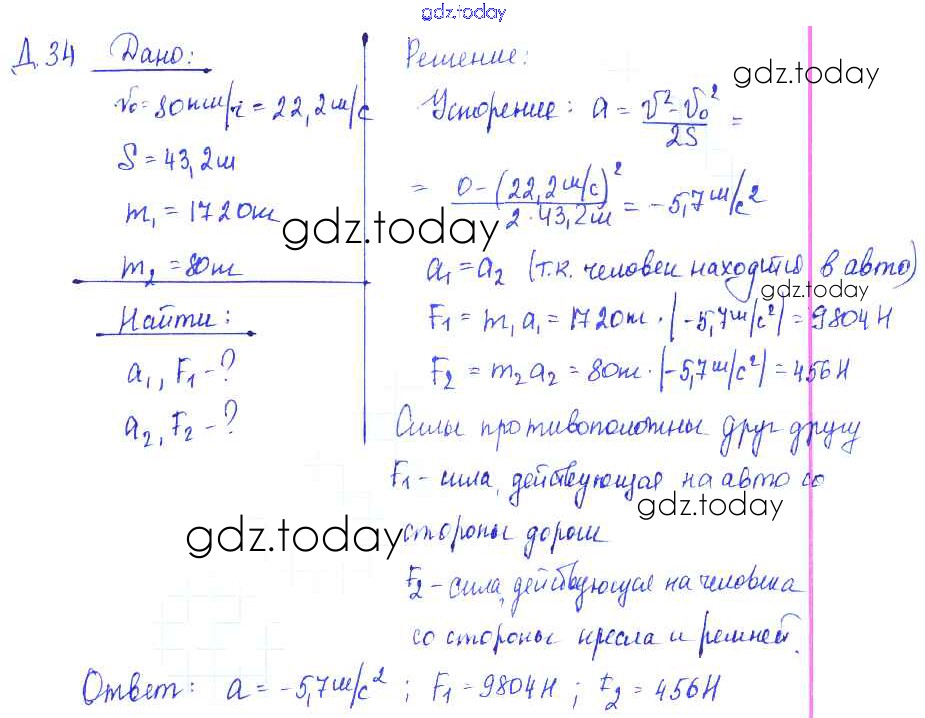 gdz.today
Д.34 Дано:
v₀ = 80 км/ч = 22,2 м/с
S = 43,2 м
m₁ = 1720 т
m₂ = 80 т
Найти:
a₁, F₁ - ?
a₂, F₂ - ?
Решение:
gdz.today
Ускорение: a = (v² - v₀²)/2S =
= (0 - (22,2 м/с)²)/(2 · 43,2 м) = -5,7 м/с²
gdz.today
a₁ = a₂ (т.к. человек находится в авто)
gdz.today
F₁ = m₁a₁ = 1720 т · |-5,7 м/с²| = 9804 Н
F₂ = m₂a₂ = 80 т · |-5,7 м/с²| = 456 Н
Силы противоположны друг другу
F₁ - сила, действующая на авто со
gdz.today
стороны дороги
gdz.today
F₂ - сила, действующая на человека
со стороны кресла и ремней.
Ответ: a = -5,7 м/с²; F₁ = 9804 Н; F₂ = 456 Н